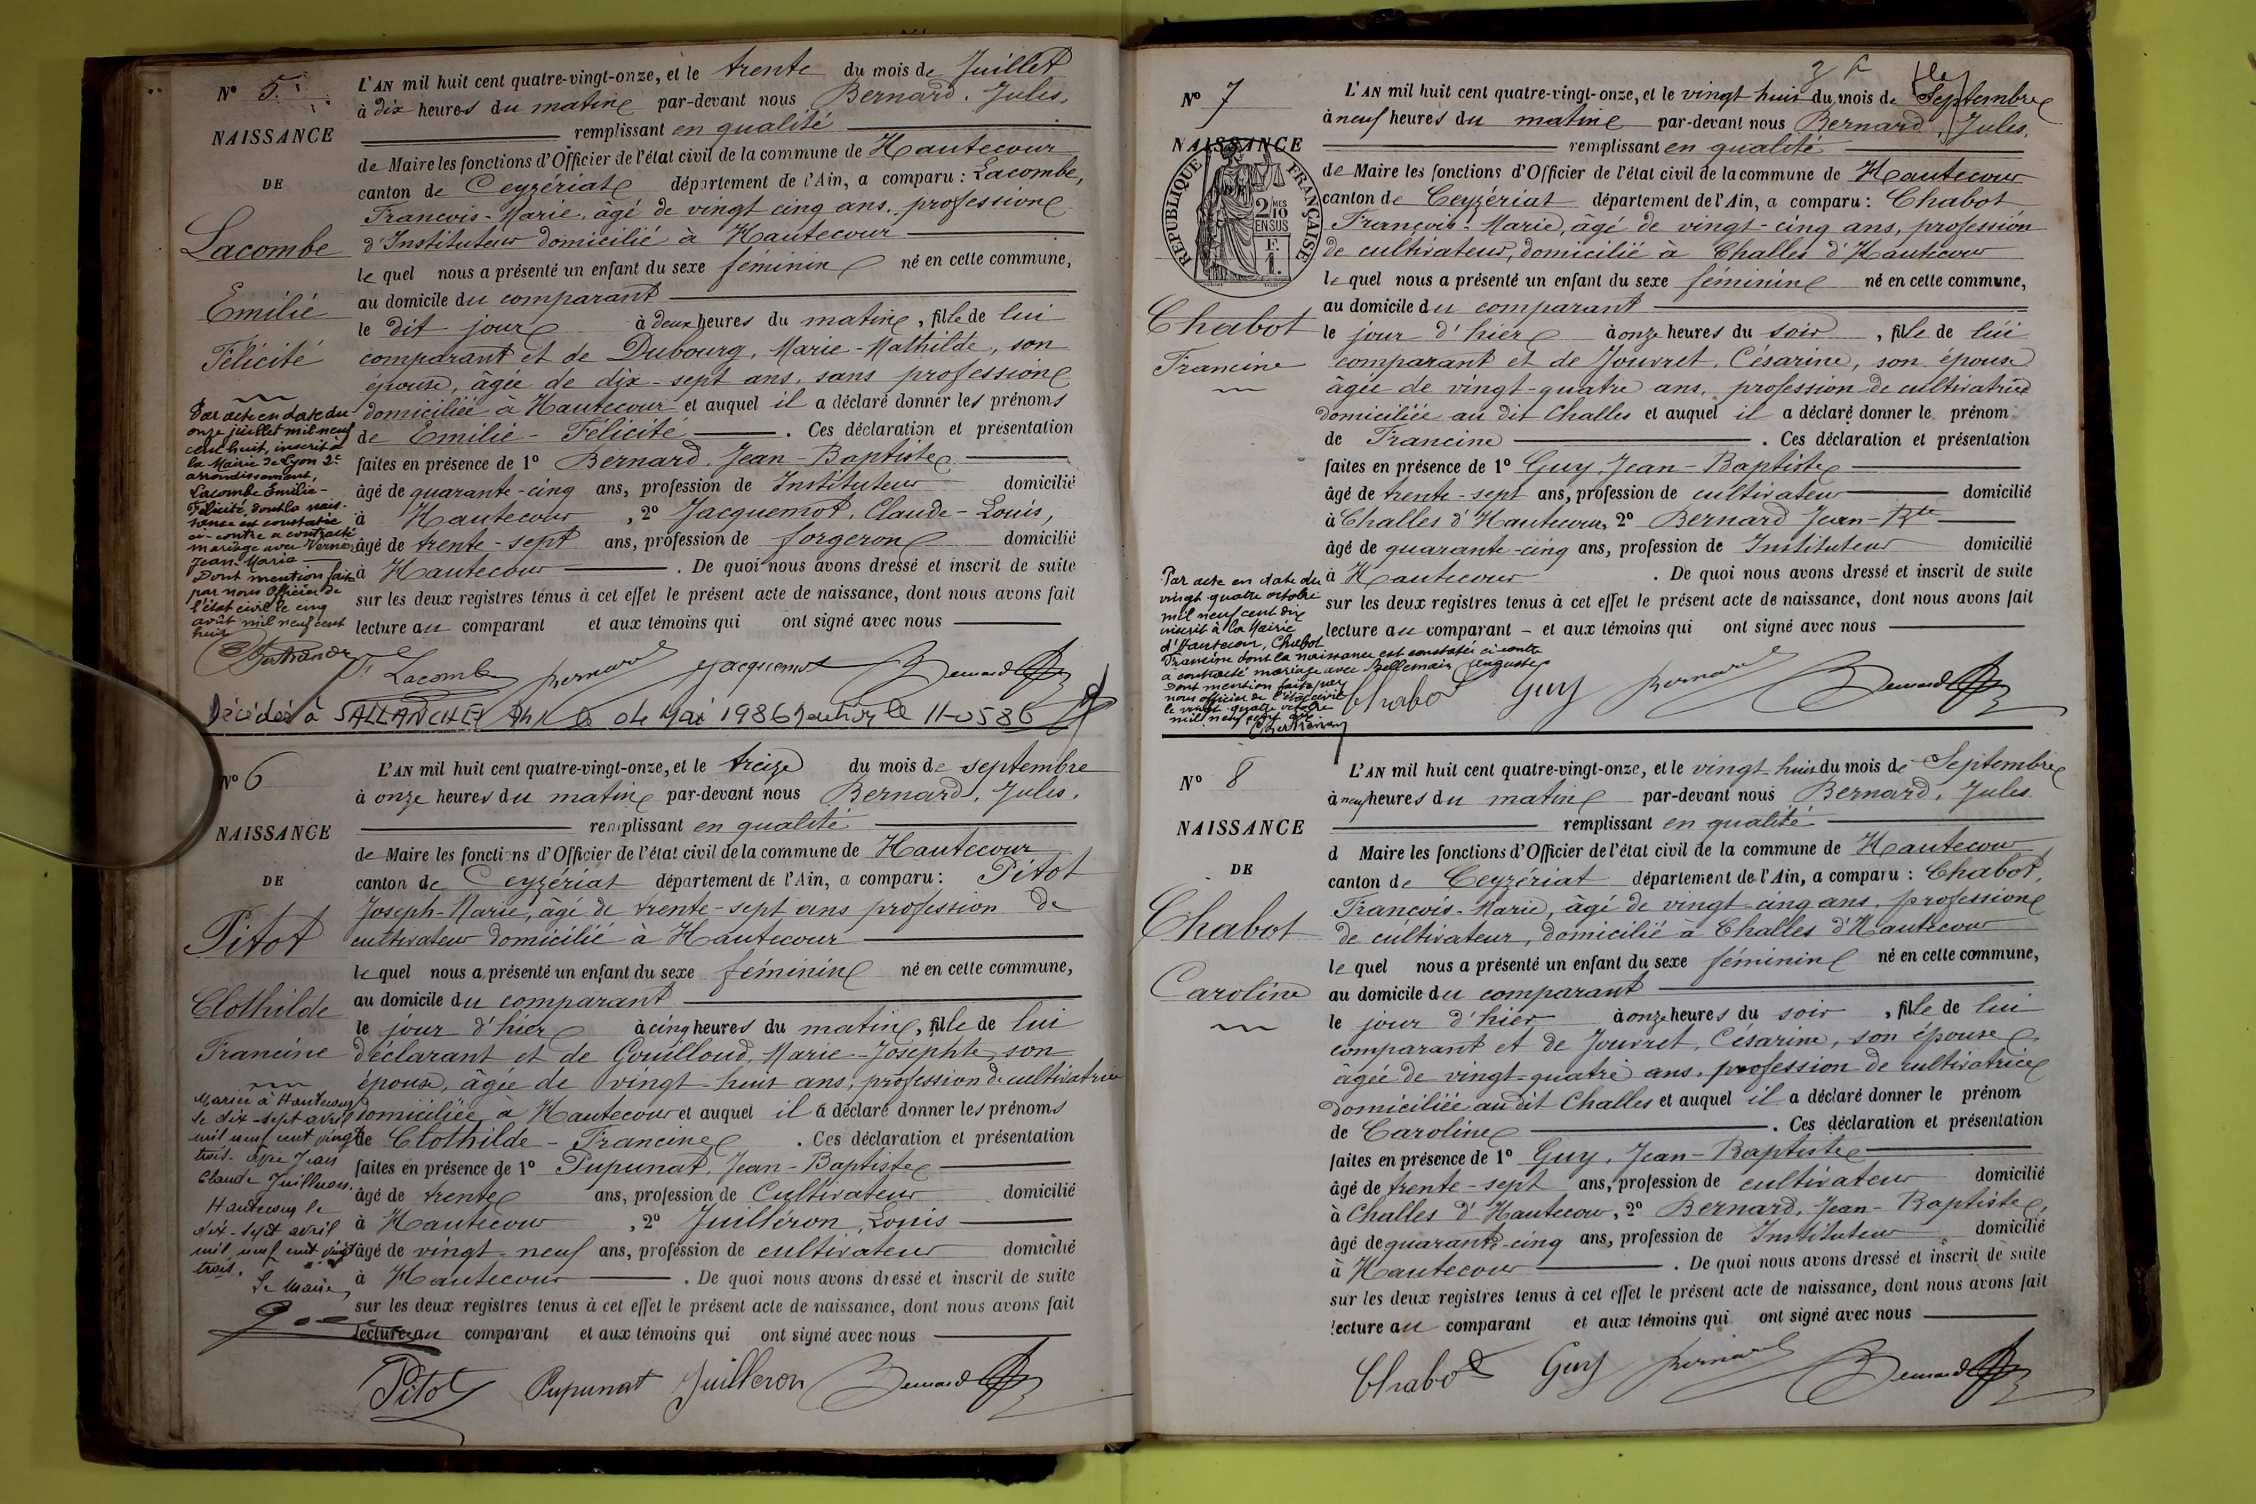 N° 5.
NAISSANCE
DE
Lacombe
Emilie
Félicité
L'AN mil huit cent quatre-vingt-onze, et le trente du mois de Juillet
à dix heures du matin par-devant nous Bernard, Jules,
remplissant en qualité
de Maire les fonctions d'Officier de l'état civil de la commune de Hautecour
canton de Ceyzériat département de l'Ain, a comparu : Lacombe,
François-Marie, âgé de vingt cinq ans, profession
d'Instituteur domicilié à Hautecour
le quel nous a présenté un enfant du sexe féminin né en cette commune,
au domicile du comparant
le dit jour à deux heures du matin, fille de lui
comparant et de Dubourg, Marie-Mathilde, son
épouse, âgée de dix-sept ans, sans profession
domiciliée à Hautecour et auquel il a déclaré donner les prénoms
de Emilie-Félicité . Ces déclaration et présentation
faites en présence de 1° Bernard, Jean-Baptiste
âgé de quarante-cinq ans, profession de Instituteur domicilié
à Hautecour , 2° Jacquemot, Claude-Louis,
âgé de trente-sept ans, profession de forgeron domicilié
à Hautecour . De quoi nous avons dressé et inscrit de suite
sur les deux registres tenus à cet effet le présent acte de naissance, dont nous avons fait
lecture au comparant et aux témoins qui ont signé avec nous
Par acte en date du
onze juillet mil neuf
cent huit, inscrit à
la Mairie de Lyon 2e
arrondissement,
Lacombe Emilie-
Félicité, dont la nais-
sance est constatée
ci-contre a contracté
mariage avec Verne
Jean-Marie
Dont mention faite
par nous Officier de
l'état civil le cinq
août mil neuf cent
huit
Bertrand
F. Lacombe Bernard Jacquemot Bernard
Décédée à SALLANCHES le 04 Mai 1986 le 11-0586
N° 6
NAISSANCE
DE
Pitot
Clothilde
Francine
L'AN mil huit cent quatre-vingt-onze, et le treize du mois de septembre
à onze heures du matin par-devant nous Bernard, Jules,
remplissant en qualité
de Maire les fonctions d'Officier de l'état civil de la commune de Hautecour
canton de Ceyzériat département de l'Ain, a comparu : Pitot
Joseph-Marie, âgé de trente-sept ans profession de
cultivateur domicilié à Hautecour
le quel nous a présenté un enfant du sexe féminin né en cette commune,
au domicile du comparant
le jour d'hier à cinq heures du matin, fille de lui
déclarant et de Gouilloud, Marie-Josephte, son
épouse, âgée de vingt-huit ans, profession de cultivatrice
domiciliée à Hautecour et auquel il a déclaré donner les prénoms
de Clothilde-Francine . Ces déclaration et présentation
faites en présence de 1° Pupunat, Jean-Baptiste
âgé de trente ans, profession de Cultivateur domicilié
à Hautecour , 2° Juilléron, Louis
âgé de vingt-neuf ans, profession de cultivateur domicilié
à Hautecour . De quoi nous avons dressé et inscrit de suite
sur les deux registres tenus à cet effet le présent acte de naissance, dont nous avons fait
lecture au comparant et aux témoins qui ont signé avec nous
Mariée à Hautecour
le dix-sept avril
mil neuf cent vingt
trois avec Jean
Claude Juilleron.
Hautecour le
dix-sept avril
mil neuf cent vingt
trois.
Le Maire,
Pitot Pupunat Juilleron Bernard
N° 7
NAISSANCE
RÉPUBLIQUE FRANÇAISE
2 10MES
EN SUS
Chabot
Francine
L'AN mil huit cent quatre-vingt-onze, et le vingt huit du mois de Septembre
à neuf heures du matin par-devant nous Bernard, Jules,
remplissant en qualité
de Maire les fonctions d'Officier de l'état civil de la commune de Hautecour
canton de Ceyzériat département de l'Ain, a comparu : Chabot
François-Marie, âgé de vingt-cinq ans, profession
de cultivateur, domicilié à Challes d'Hautecour
le quel nous a présenté un enfant du sexe féminin né en cette commune,
au domicile du comparant
le jour d'hier à onze heures du soir , fille de lui
comparant et de Jouvret, Césarine, son épouse
âgée de vingt-quatre ans, profession de cultivatrice
domiciliée au dit Challes et auquel il a déclaré donner le prénom
de Francine . Ces déclaration et présentation
faites en présence de 1° Guy, Jean-Baptiste
âgé de trente-sept ans, profession de cultivateur domicilié
à Challes d'Hautecour, 2° Bernard Jean-Bte
âgé de quarante-cinq ans, profession de Instituteur domicilié
à Hautecour . De quoi nous avons dressé et inscrit de suite
sur les deux registres tenus à cet effet le présent acte de naissance, dont nous avons fait
lecture au comparant - et aux témoins qui ont signé avec nous
Par acte en date du
vingt quatre octobre
mil neuf cent dix
inscrit à la Mairie
d'Hautecour, Chabot
Francine dont la naissance est constatée ci-contre
a contracté mariage avec Bellemain Auguste
Dont mention faite par
nous officier de l'état civil
le vingt quatre octobre
mil neuf cent dix
Bertrand
Chabot Guy Bernard Bernard
N° 8
NAISSANCE
DE
Chabot
Caroline
L'AN mil huit cent quatre-vingt-onze, et le vingt huit du mois de Septembre
à neuf heures du matin par-devant nous Bernard, Jules
remplissant en qualité
d Maire les fonctions d'Officier de l'état civil de la commune de Hautecour
canton de Ceyzériat département de l'Ain, a comparu : Chabot,
François-Marie, âgé de vingt-cinq ans, profession
de cultivateur, domicilié à Challes d'Hautecour
le quel nous a présenté un enfant du sexe féminin né en cette commune,
au domicile du comparant
le jour d'hier à onze heures du soir , fille de lui
comparant et de Jouvret, Césarine, son épouse
âgée de vingt-quatre ans, profession de cultivatrice
domiciliée au dit Challes et auquel il a déclaré donner le prénom
de Caroline . Ces déclaration et présentation
faites en présence de 1° Guy, Jean-Baptiste
âgé de trente-sept ans, profession de cultivateur domicilié
à Challes d'Hautecour, 2° Bernard, Jean-Baptiste,
âgé de quarante-cinq ans, profession de Instituteur domicilié
à Hautecour . De quoi nous avons dressé et inscrit de suite
sur les deux registres tenus à cet effet le présent acte de naissance, dont nous avons fait
lecture au comparant et aux témoins qui ont signé avec nous
Chabot Guy Bernard Bernard